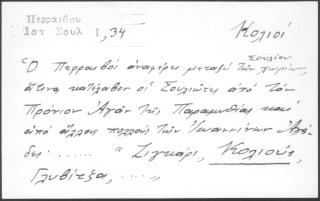 Περραιβου
Ιστ Σουλ Ι,34
Κολιοί
Ὁ Περραιβός ἀναφέρει μεταξύ τῶν χωρίων
Σουλίου
ἅτινα κατέλαβον οἱ Σουλιῶτες ἀπό τόν
Πρόνιον Ἀγᾶν τῆς Παραμυθίας καί
ἀπό ἄλλους πολλούς τῶν Ἰωαννίνων Ἀγά-
δες ...... " Ζιγκάρι, Κολιούς,
Γλυβίτζα, .... "